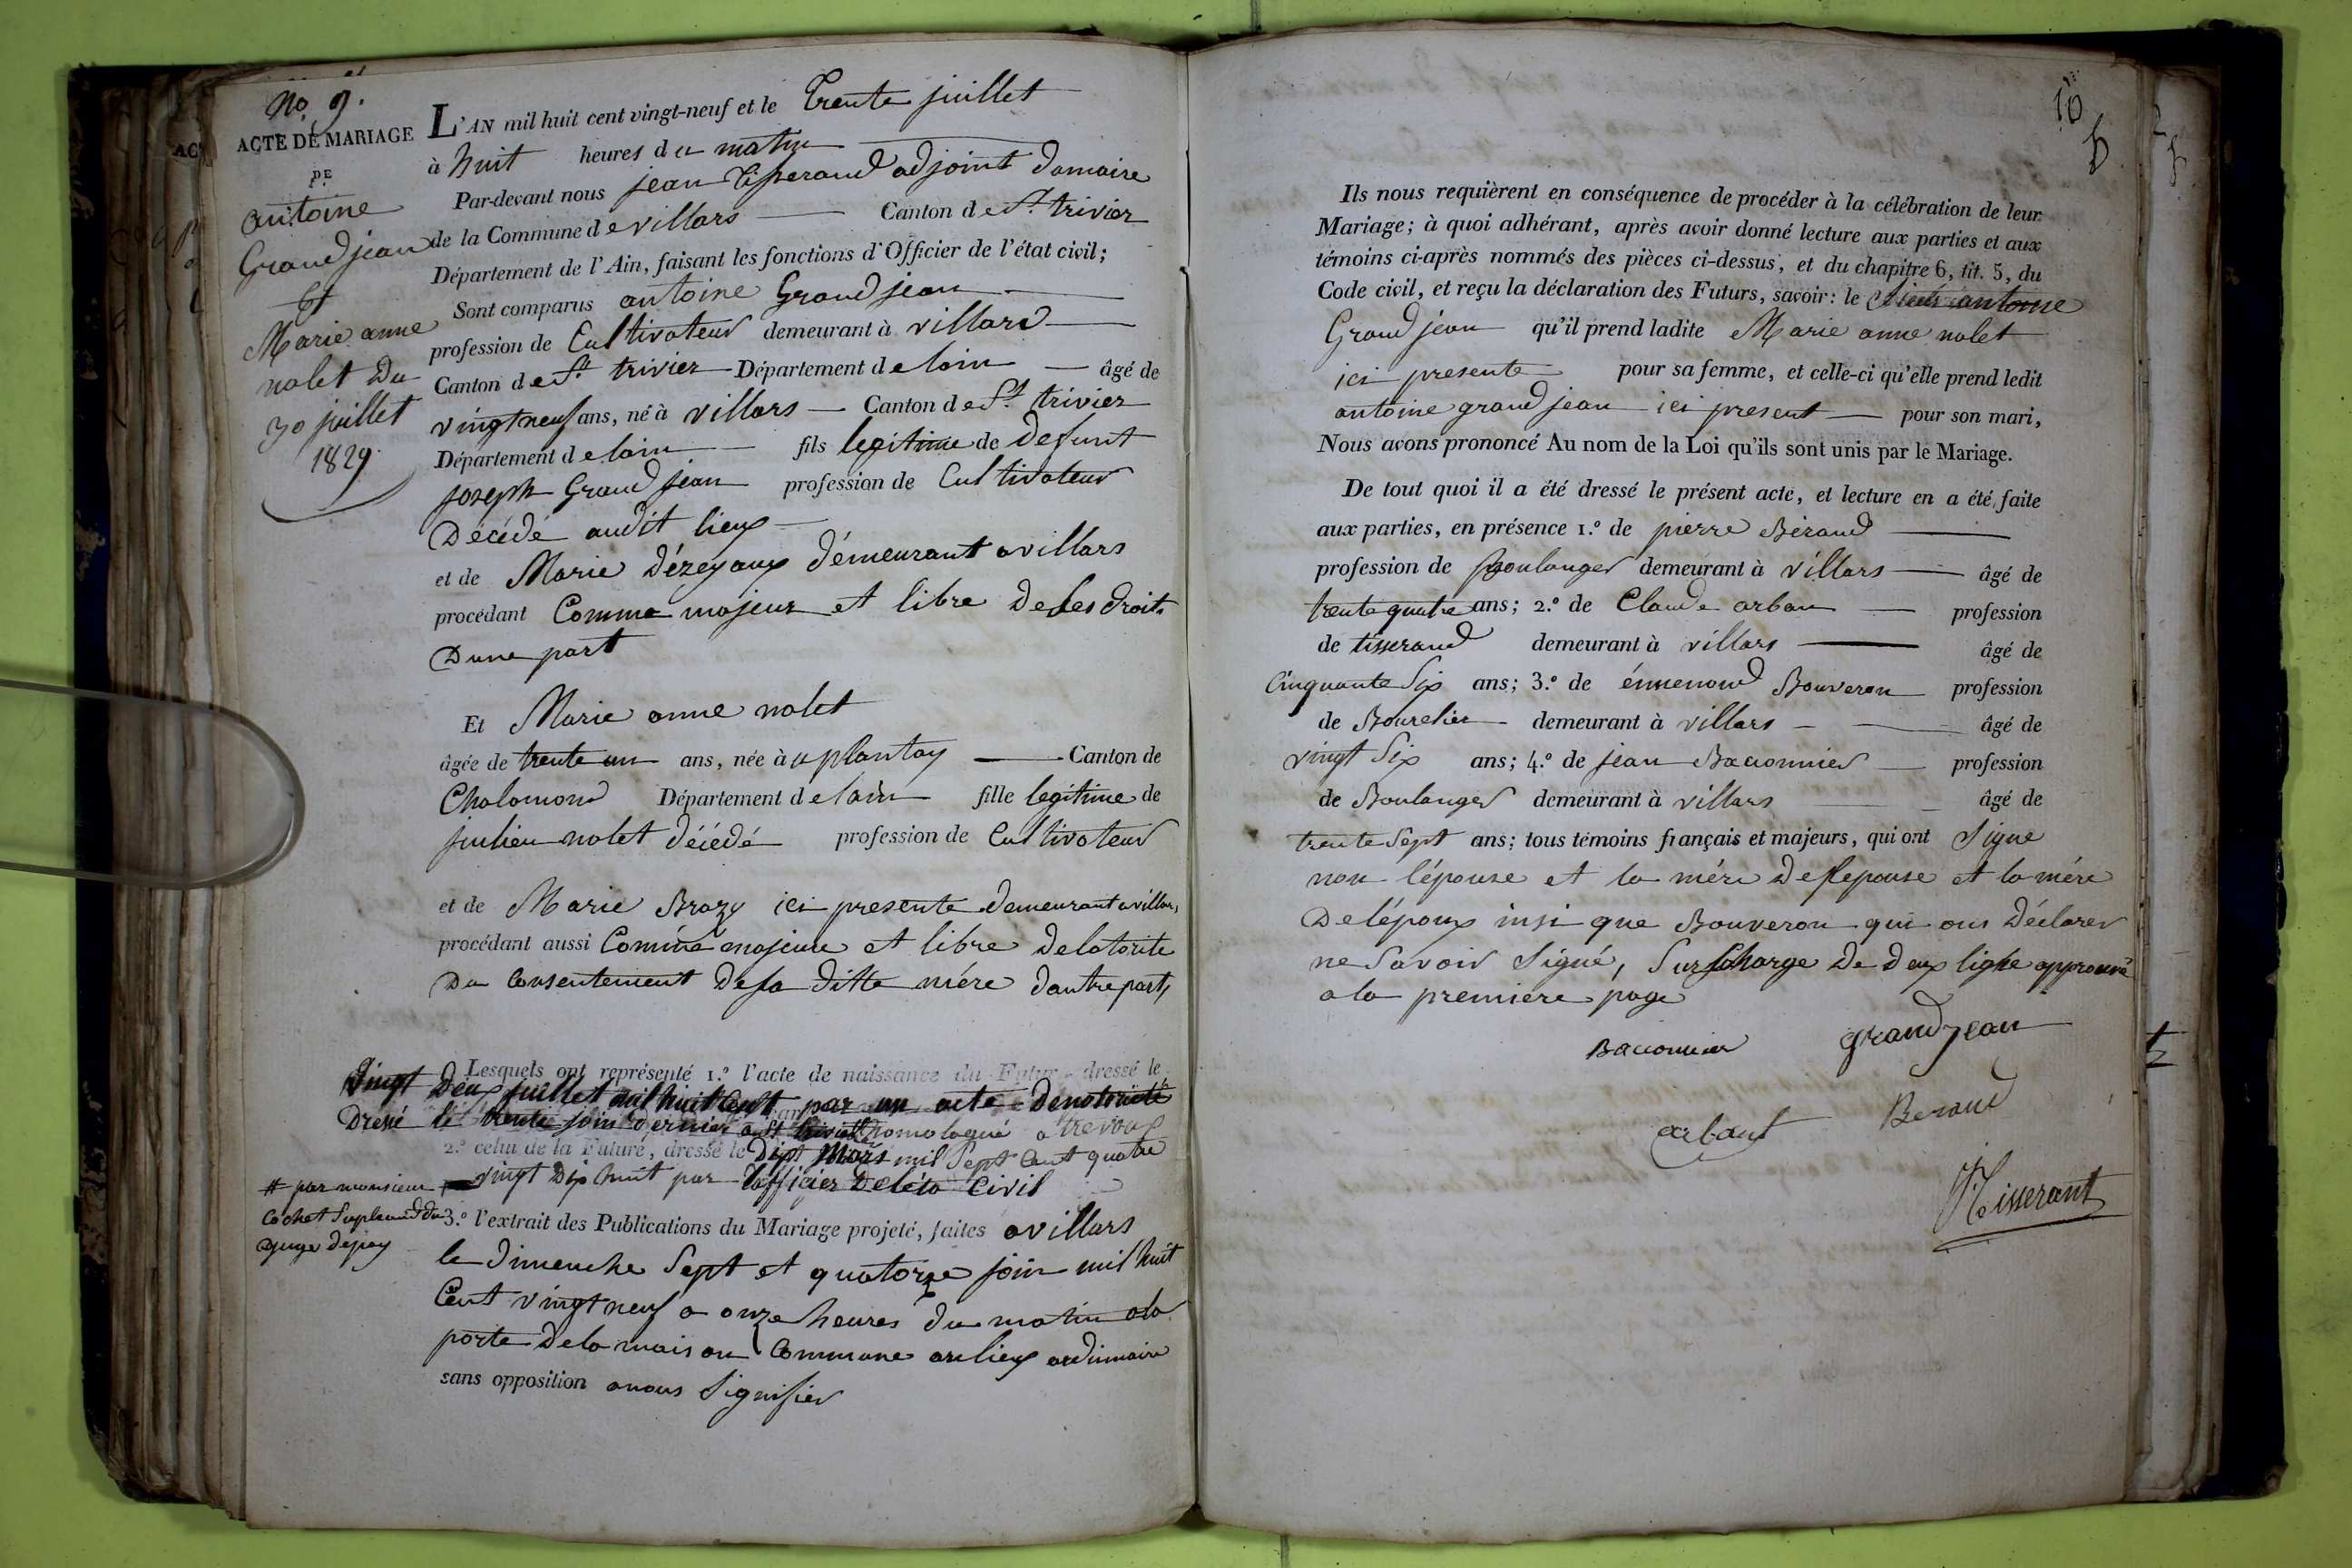 No. 9.
ACTE DE MARIAGE
DE
antoine
Grandjean
Et
Marie anne
nolet Du
30 juillet
1829
L'AN mil huit cent vingt-neuf et le Trente juillet
à huit heures du matin
Par-devant nous jean Tisserand adjoint Damaire
de la Commune de villars Canton de St. trivier
Département de l'Ain, faisant les fonctions d'Officier de l'état civil;
Sont comparus antoine Grandjean
profession de Cultivateur demeurant à villars
Canton de St. trivier Département de lain âgé de
vingt neuf ans, né à villars Canton de St. trivier
Département de lain fils legitime de defunt
joseph Grandjean profession de Cultivateur
Décédé audit lieux
et de Marie Dézeyaux démeurant a villars
procédant Comme majeur et libre De ses droits
Dune part
Et Marie anne nolet
âgée de trente un ans, née à u plantay Canton de
Chalamond Département de lain fille legitime de
julien nolet décédé profession de Cultivateur
et de Marie Brazy ici presente demeurant a villars
procédant aussi Comme majeure et libre delatorite
Du Consentement De sa ditte mére dautre part,
Lesquels ont représenté 1.º l'acte de naissance du Futur dressé le
Vingt Deux juillet mil huit Cent par un acte Denotoriété
Dressé le trente join dernier a St trivier homologué a trevoux
2.º celui de la Future, dressé le Dix Mars mil Sept Cent quatre
vingt Dix huit par lofficier Deléta Civil
# par monsieur
Cochet Supleand du
guge depay
3.º l'extrait des Publications du Mariage projeté, faites a villars
le Dimenche Sept et quatorze join mil huit
Cent vingt neuf a onze heures du matin ala
porte Dela maison Commune au lieux ordinnaire
sans opposition a nous Signifier
10
b
Ils nous requièrent en conséquence de procéder à la célébration de leur
Mariage; à quoi adhérant, après avoir donné lecture aux parties et aux
témoins ci-après nommés des pièces ci-dessus, et du chapitre 6, tit. 5, du
Code civil, et reçu la déclaration des Futurs, savoir: le Sieur antoine
Grandjean qu'il prend ladite Marie anne nolet
ici presente pour sa femme, et celle-ci qu'elle prend ledit
antoine grandjean ici present pour son mari,
Nous avons prononcé Au nom de la Loi qu'ils sont unis par le Mariage.
De tout quoi il a été dressé le présent acte, et lecture en a été faite
aux parties, en présence 1.º de pierre Béraud
profession de Boulanger demeurant à villars âgé de
trente quatre ans; 2.º de Claude arban profession
de tisserand demeurant à villars âgé de
Cinquante Six ans; 3.º de énnemond Bouveron profession
de Bourelier demeurant à villars âgé de
vingt Six ans; 4.º de jean Baccounier profession
de Boulanger demeurant à villars âgé de
trente Sept ans; tous témoins français et majeurs, qui ont Signe
non l'épouse et la mére De l'epouse et la mére
De l'époux insi que Bouveron qui ons Déclarer
ne Savoir Signé, Surcharge De deux ligne approuvé
a la premiere page
Baccounier grandjean
arbant Beraud
J Tisserant